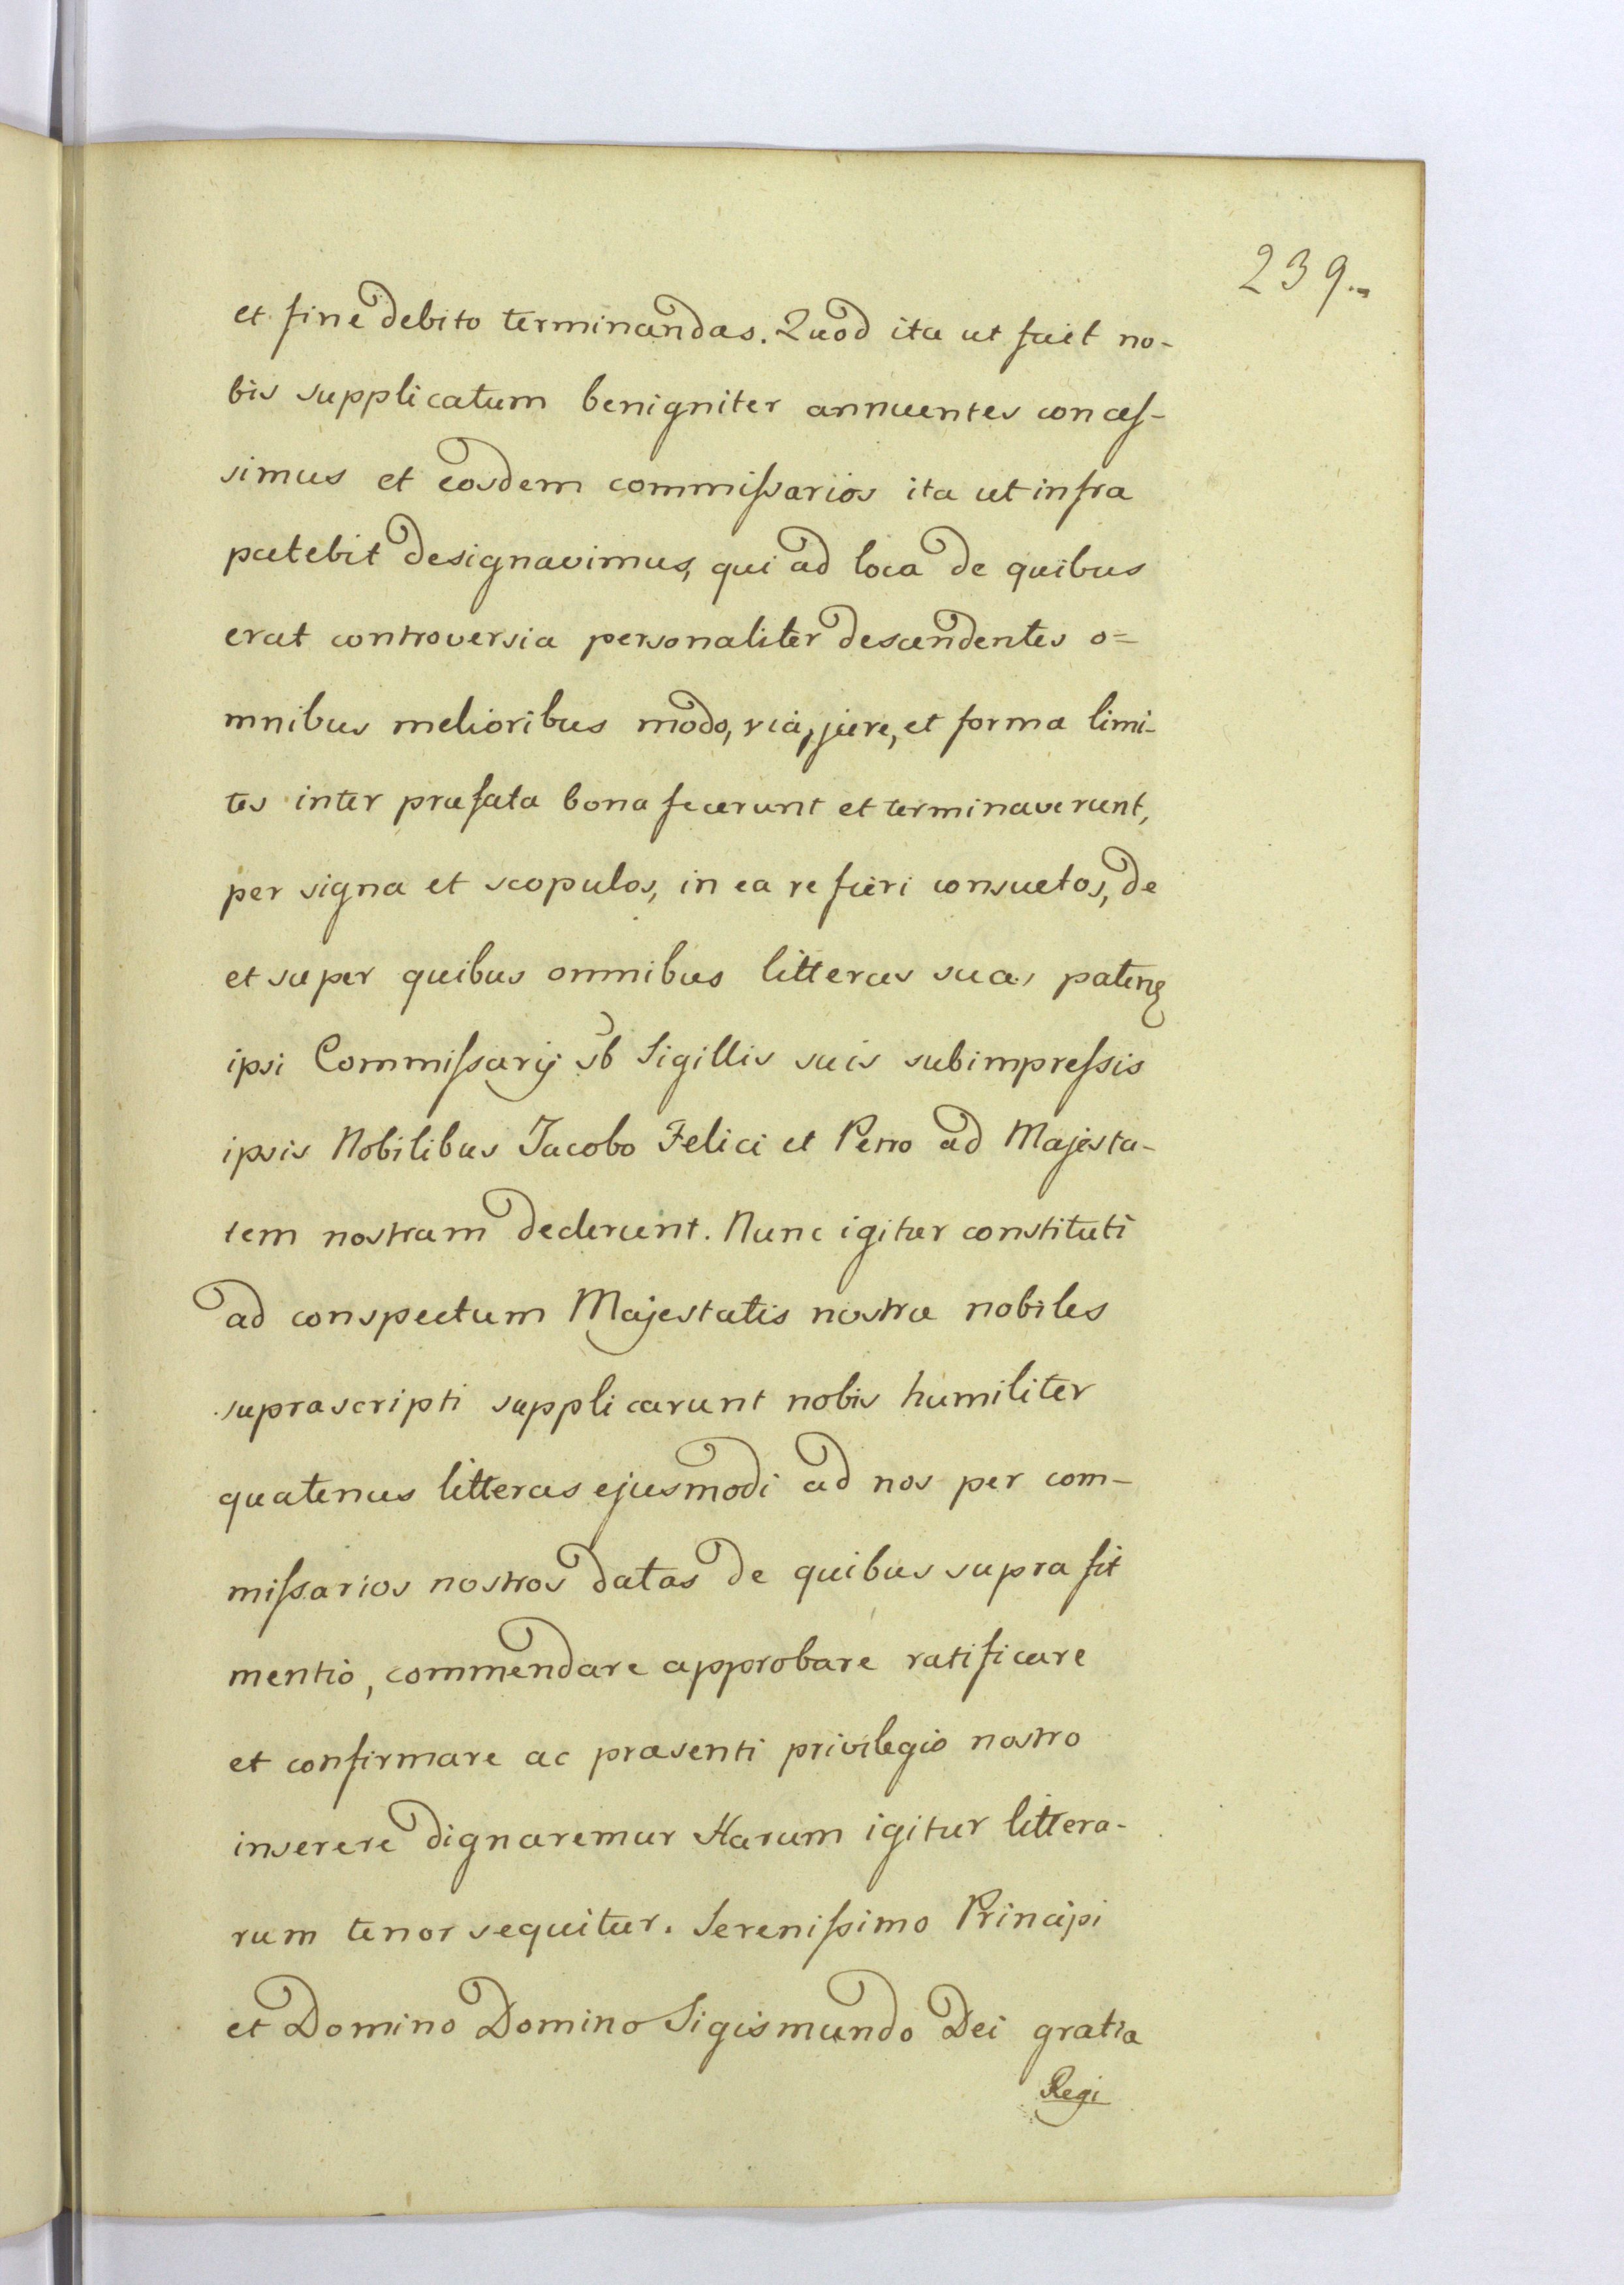 239.
et fine debito terminandas. Quod ita ut fuit no-
bis supplicatum benigniter annuentes conces-
simus et eosdem commissarios ita ut infra
patebit designavimus, qui ad loca de quibus
erat controversia personaliter descendentes o=
mnibus melioribus modo, via, jure, et forma limi-
tes inter præfata bona fecerunt et terminaverunt,
per signa et scopulos, in ea re fieri consuetos, de
et super quibus omnibus litteras suas
ipsi Commissarij sb Sigillis suis subimpressis
ipsis Nobilibus Jacobo Felici et Petro ad Majesta-
tem nostram dederunt. Nunc igitur constituti
ad conspectum Majestatis nostræ nobiles
suprascripti supplicarunt nobis humiliter
quatenus litteras ejusmodi ad nos per com-
missarios nostros datas de quibus supra fit
mentio, commendare approbare ratificare
et confirmare ac præsenti privilegio nostro
inserere dignaremur Harum igitur littera-
rum tenor sequitur. Serenissimo Principi
et Domino Domino Sigismundo Dei gratia
Regi